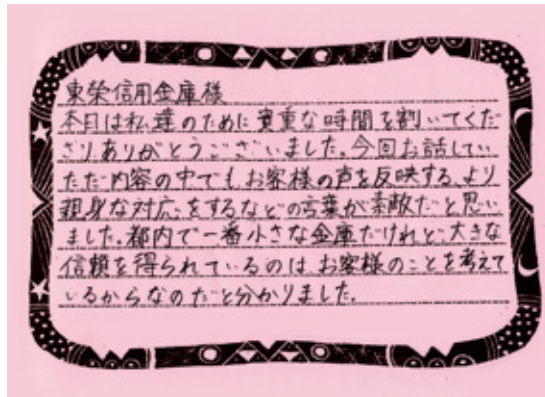 東榮信用金庫様
本日は私達のために貴重な時間を割いてくだ
さりありがとうございました。今回お話してい
ただ内容の中でも、お客様の声を反映する、より
親身な対応をするなどの言葉が素敵だと思い
ました。都内で一番小さな金庫だけれど、大きな
信頼を得られているのは、お客様のことを考えて
いるからなのだと分かりました。